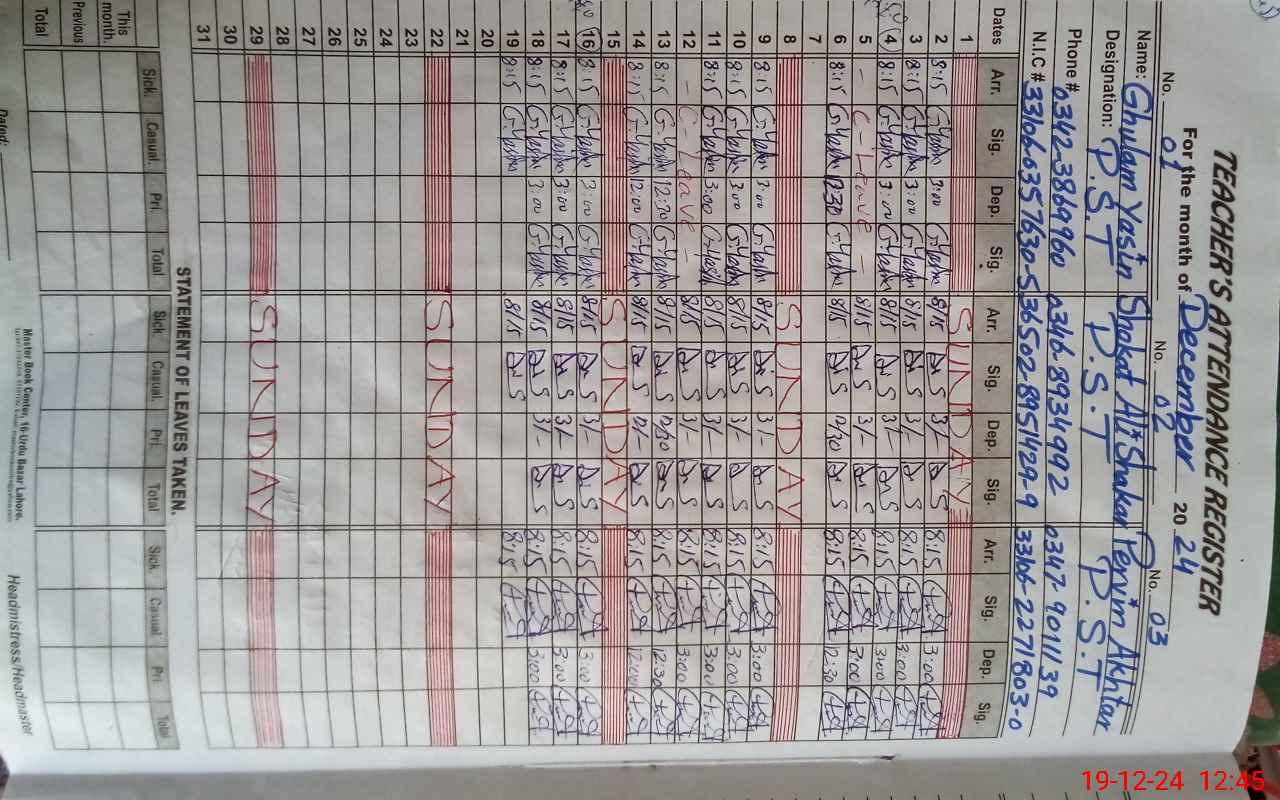 TEACHER'S ATTENDANCE REGISTER
For the month of December 2024
No. 01 No. 02 No. 03
Name: Ghulam Yasin Shokat Ali Shakar Pervin Akhter
Designation: P.S.T P.S.T P.S.T
Phone # 0342-3869960 0346-8934992 0347-9011139
N.I.C # 33106-0357630-5 36502-8951429-9 33106-2271803-0
Dates Arr. Sig. Dep. Sig. Arr. Sig. Dep. Sig. Arr. Sig. Dep. Sig.
1 SUNDAY
2 8:15 G.Yasin 3:00 G.Yasin 8/15 3/- 8:15 3:00
3 8:15 G.Yasin 3:00 G.Yasin 8/15 3/- 8:15 3:00
4 8:15 G.Yasin 3:00 G.Yasin 8/15 3/- 8:15 3:00
5 - C-Leave - 8/15 3/- 8:15 3:00
6 8:15 G.Yasin 12:30 G.Yasin 8/15 12/30 8:15 12:30
7
8 SUNDAY
9 8:15 G.Yasin 3:00 G.Yasin 8/15 3/- 8:15 3:00
10 8:15 G.Yasin 3:00 G.Yasin 8/15 3/- 8:15 3:00
11 8:15 G.Yasin 3:00 G.Yasin 8/15 3/- 8:15 3:00
12 - C-Leave - 8/15 3/- 8:15 3:00
13 8:15 G.Yasin 12:30 G.Yasin 8/15 12/30 8:15 12:30
14 8:15 G.Yasin 12:00 G.Yasin 8/15 12/- 8:15 12:00
15 SUNDAY
16 8:15 G.Yasin 3:00 G.Yasin 8/15 3/- 8:15 3:00
17 8:15 G.Yasin 3:00 G.Yasin 8/15 3/- 8:15 3:00
18 8:15 G.Yasin 3:00 G.Yasin 8/15 3/- 8:15 3:00
19 8:15 G.Yasin 8/15 8:15
20
21
22 SUNDAY
23
24
25
26
27
28
29 SUNDAY
30
31
STATEMENT OF LEAVES TAKEN.
Sick. Casual. Pri. Total Sick Casual. Pri. Total Sick Casual Pri Total
This month.
Previous
Total
Master Book Center, 16-Urdu Bazar Lahore.
Dated: Headmistress/Headmaster
19-12-24 12:45